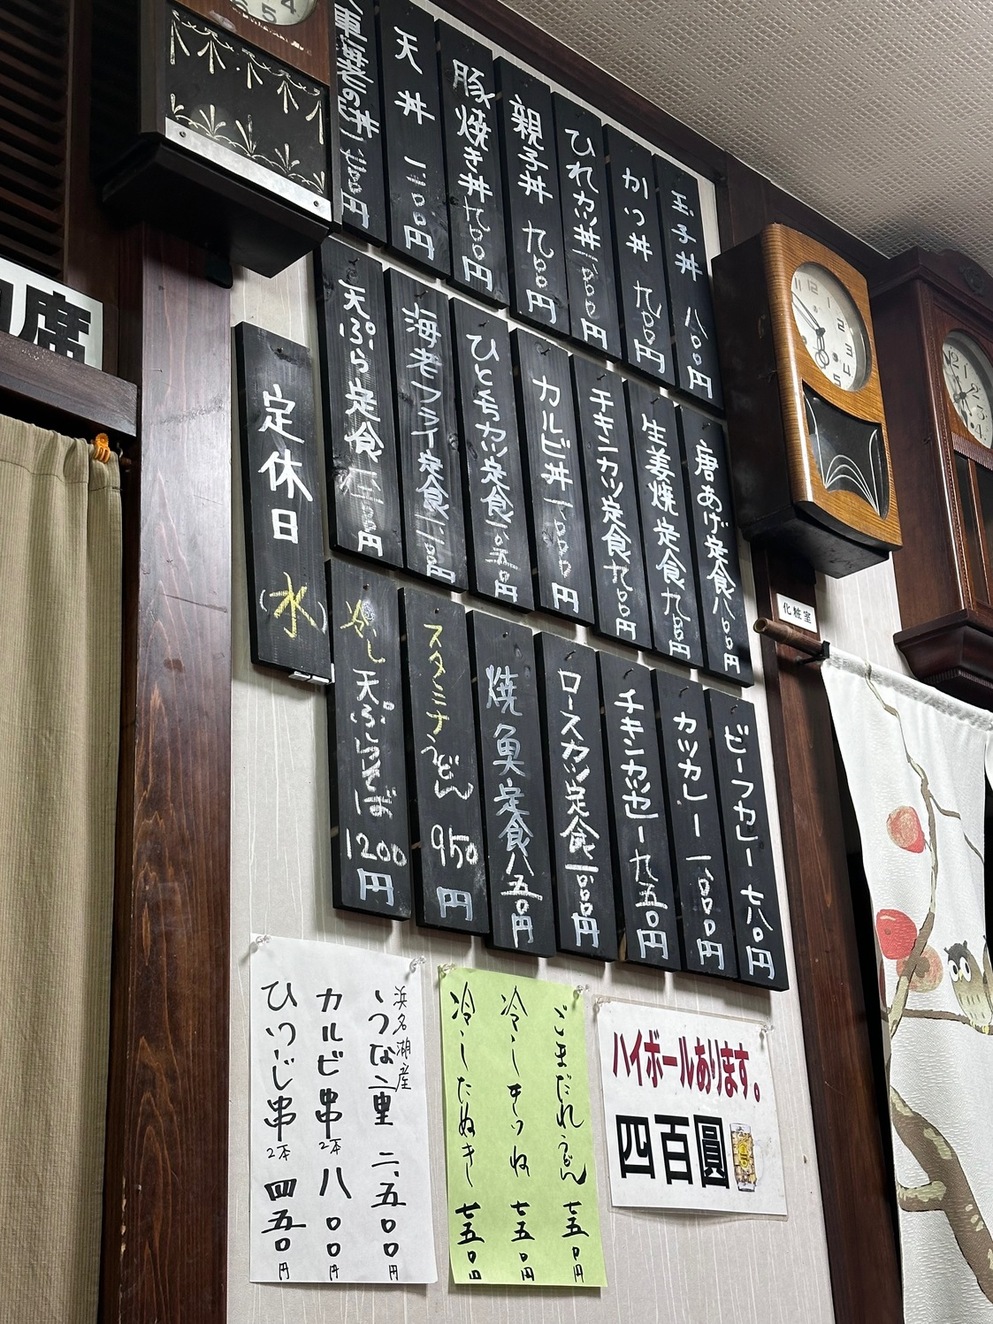 玉子丼 八〇〇円
かつ丼 九〇〇円
ひれカツ丼 一、〇〇〇円
親子丼 九〇〇円
豚焼き丼 九〇〇円
天丼 円
円
唐あげ定食 八〇〇円
生姜焼定食 九〇〇円
チキンカツ定食 九〇〇円
カルビ丼 一、〇〇〇円
ひとくちカツ定食 円
海老フライ定食 円
天ぷら定食 円
定休日(水)
ビーフカレー 七八〇円
カツカレー 一、〇〇〇円
チキンカツカレー 九五〇円
ロースカツ定食 円
焼魚定食 八五〇円
スタミナうどん 950円
冷し天ぷらそば 1200円
ハイボールあります。
四百圓
ごまだれうどん 七五〇円
冷しきつね 七五〇円
冷したぬき 七五〇円
浜名湖産
うな重 二、五〇〇円
カルビ串2本 八〇〇円
ひつじ串2本 四五〇円
化粧室
席